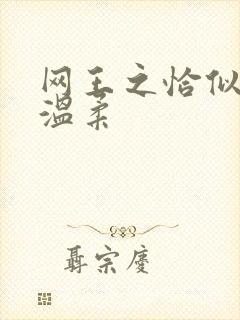 网王之恰似
温柔
聂宗庆